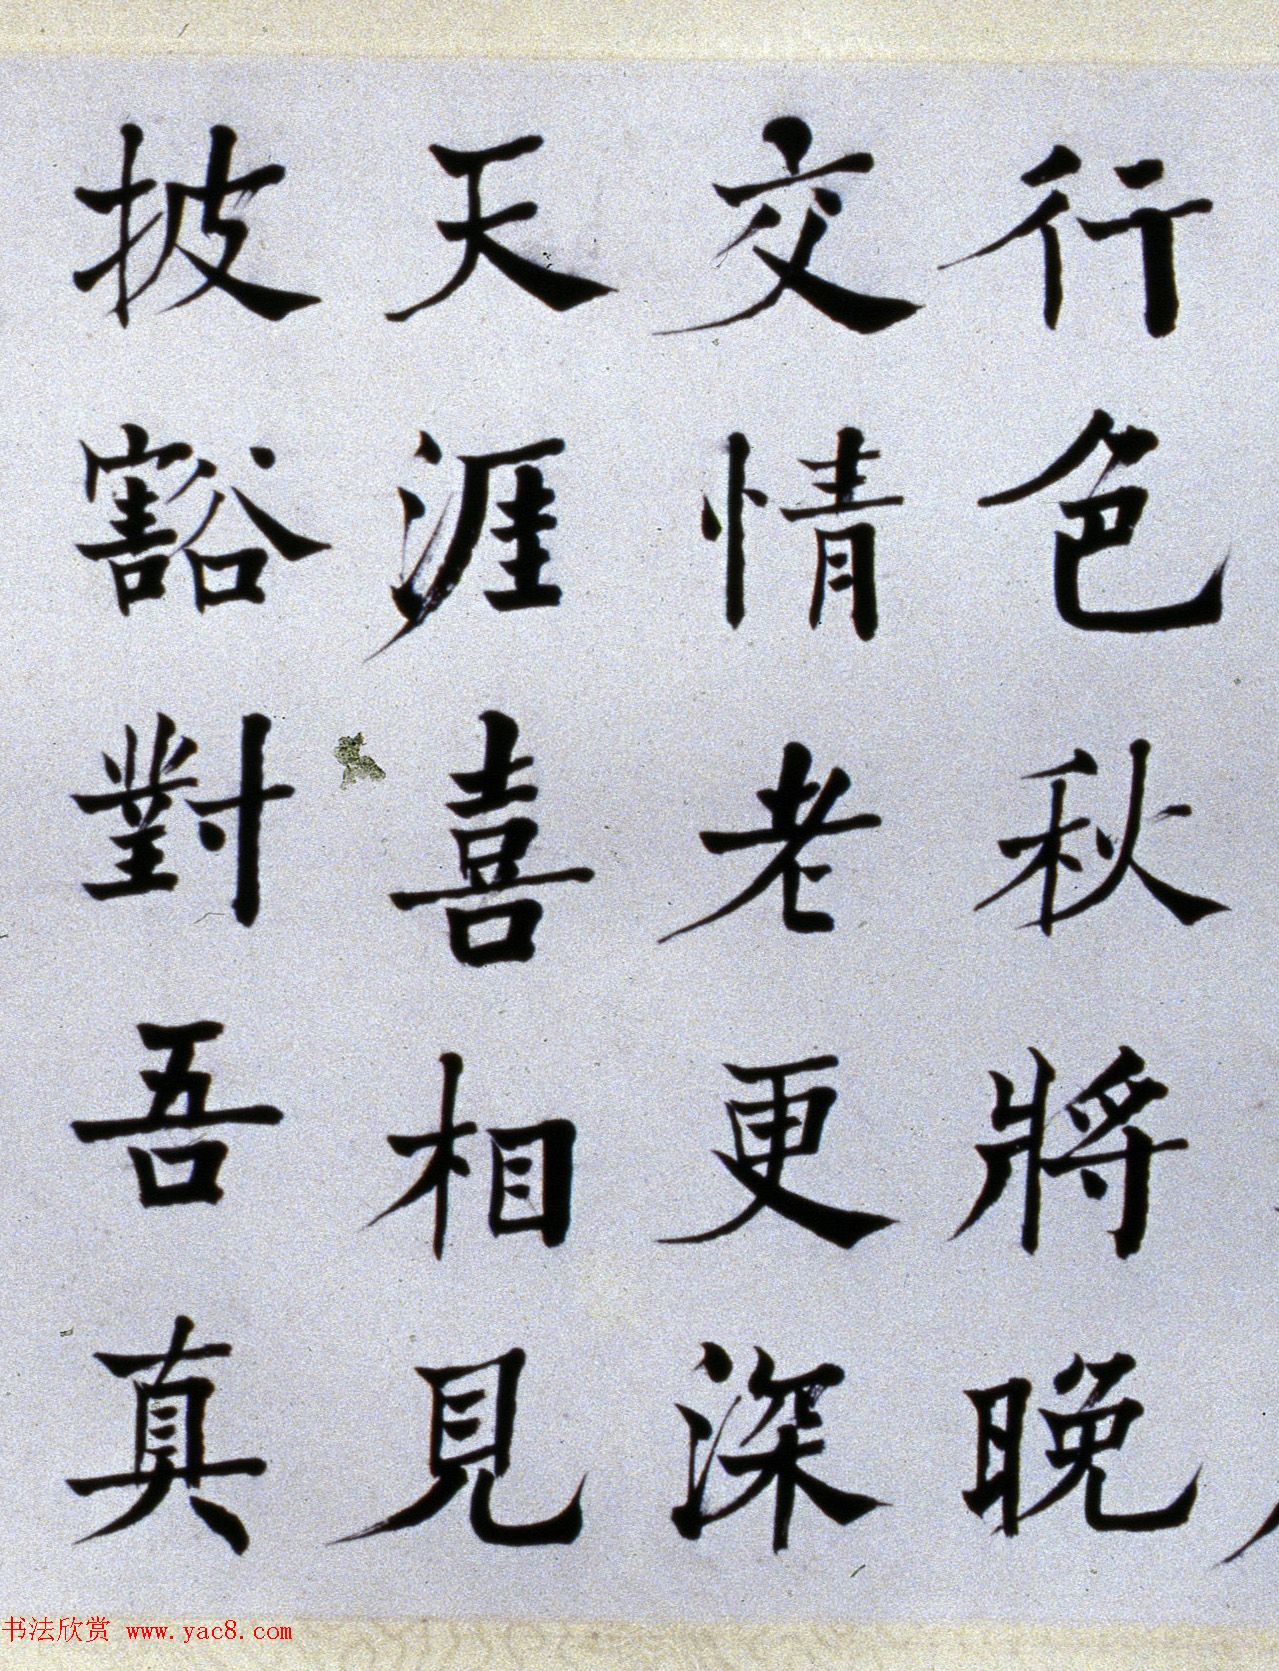 行色秋將晚
交情老更深
天涯喜相見
披豁對吾真
书法欣赏 www.yac8.com